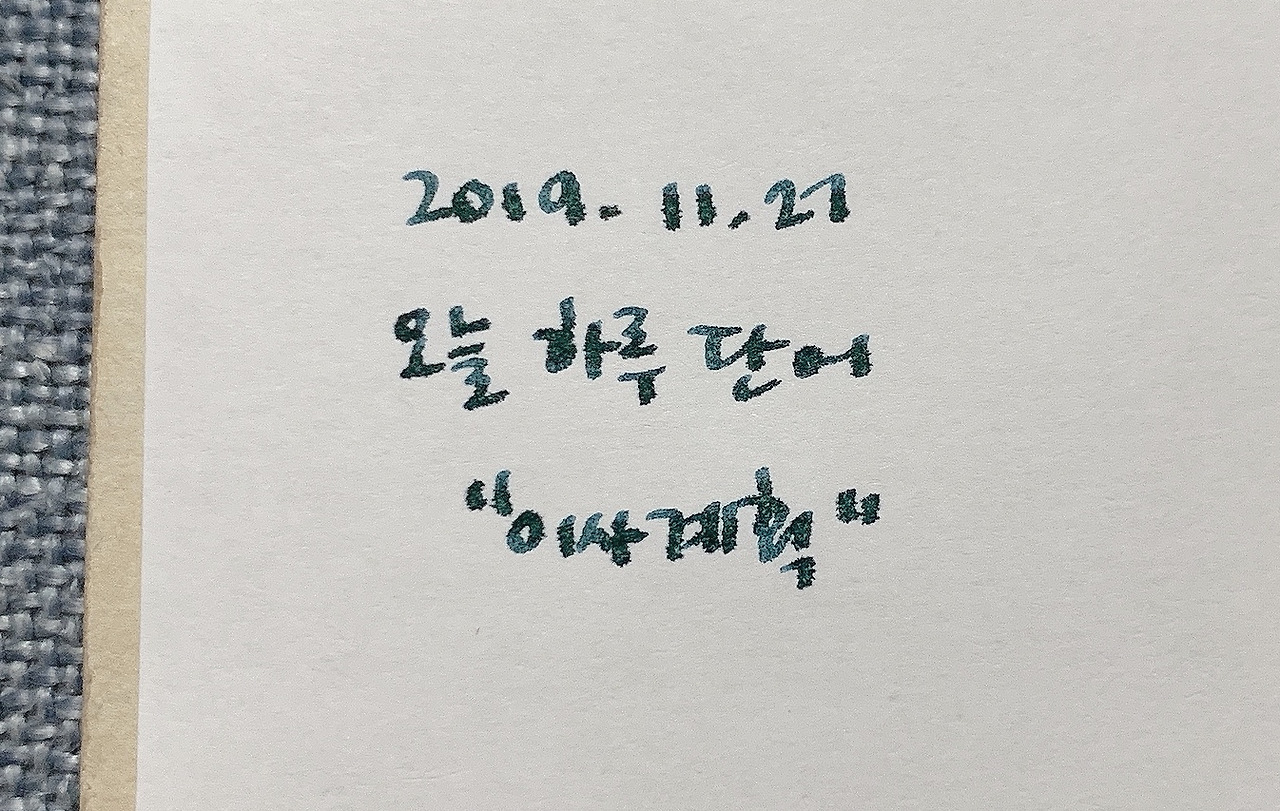 2019. 11. 27
오늘 하루 단어
"이사계획"